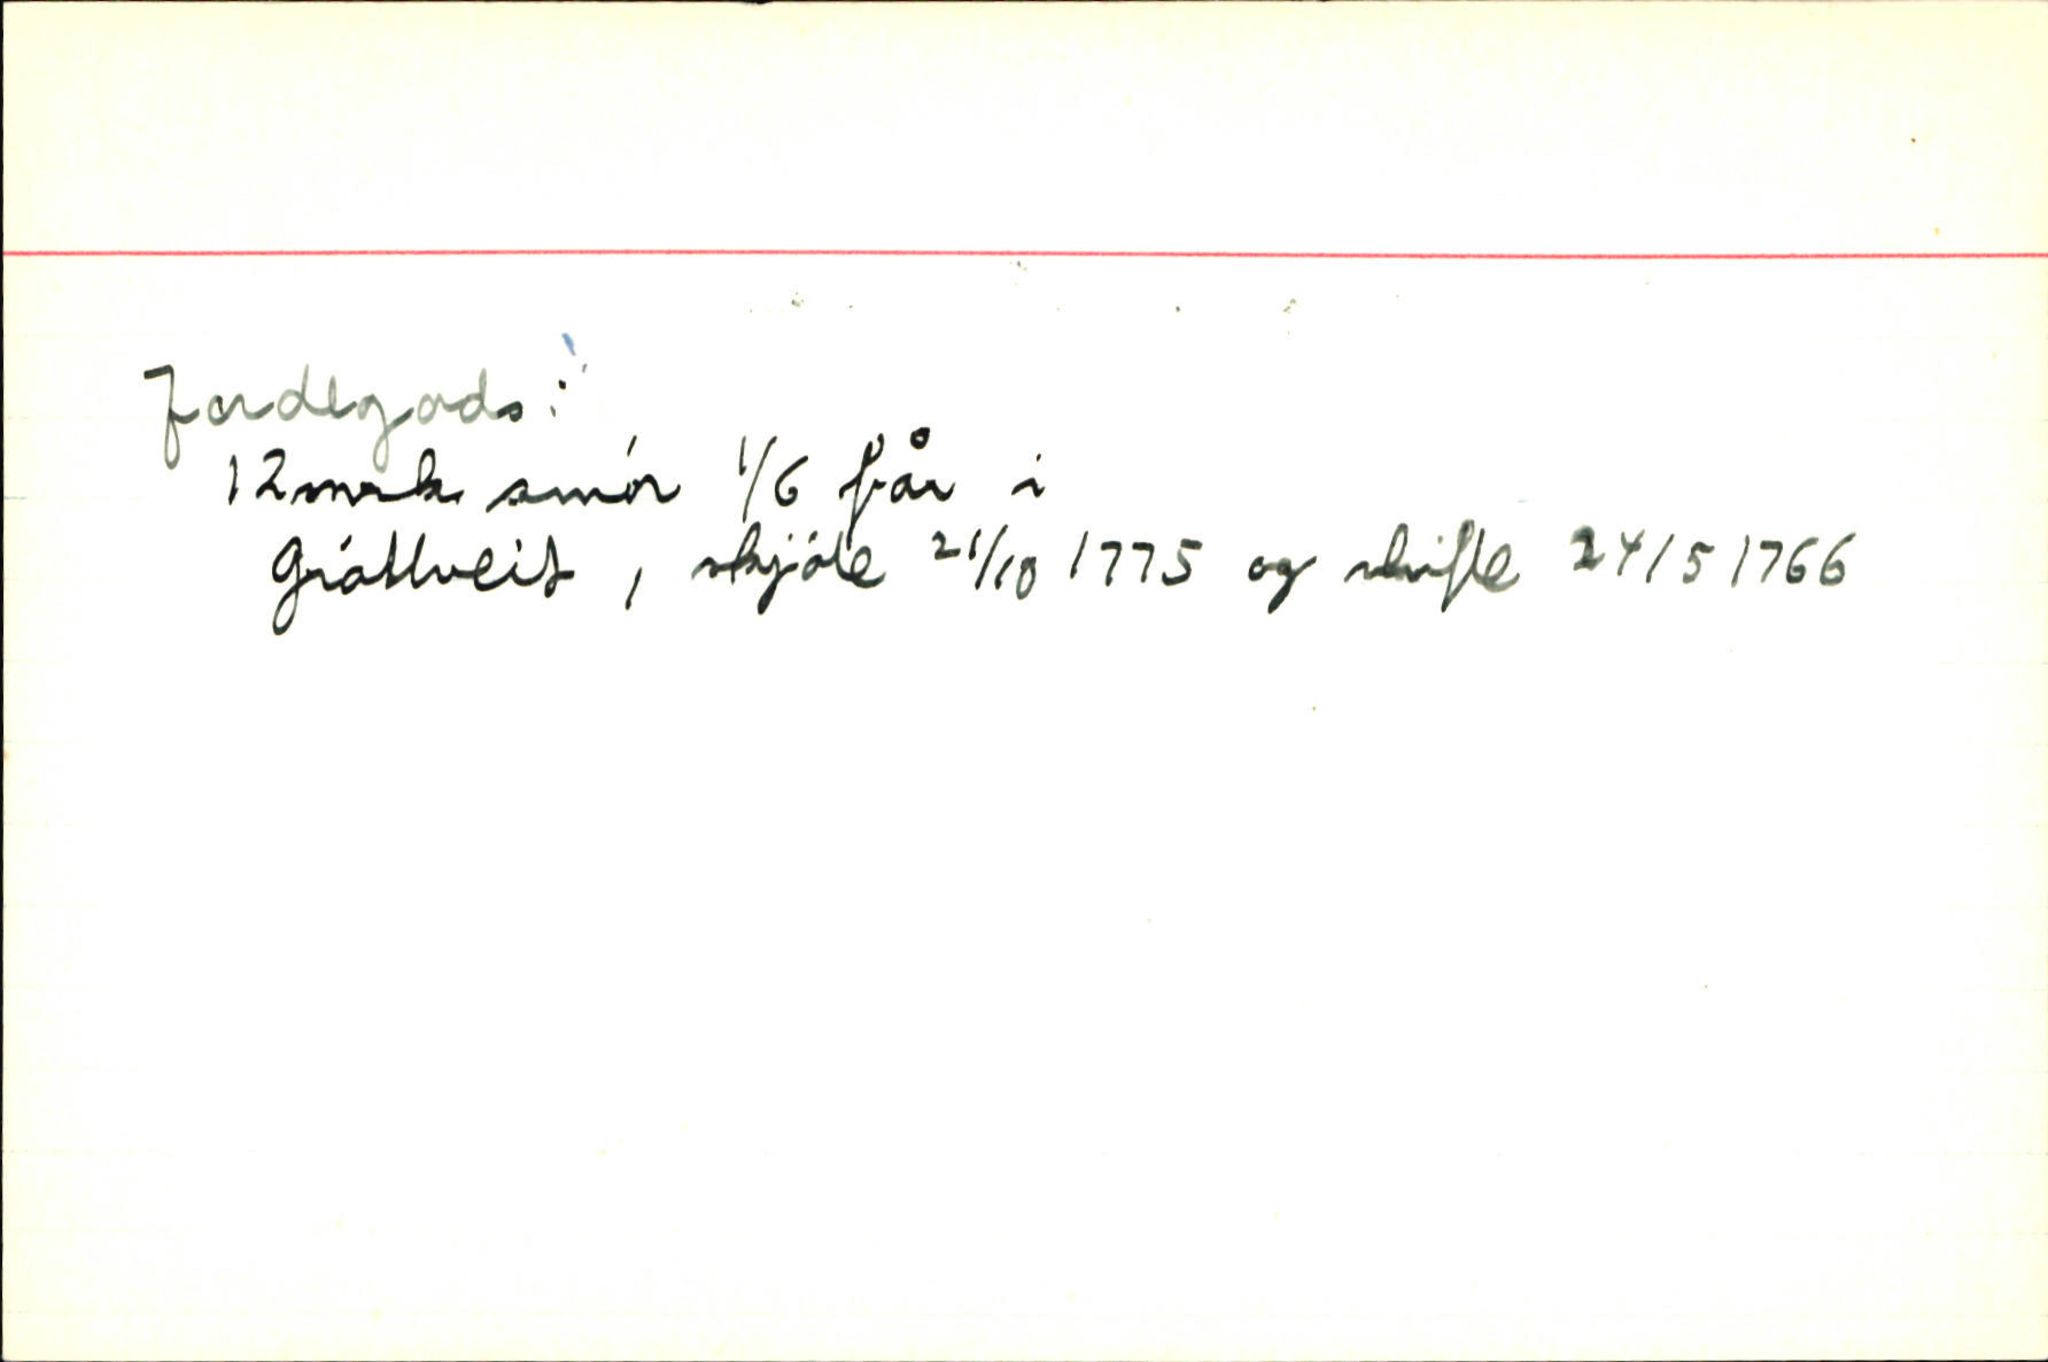 Jordegods:
12 mrk smör 1/6 får i
Gröttveit, skjöte 21/10 1775 og skifte 24/5 1766